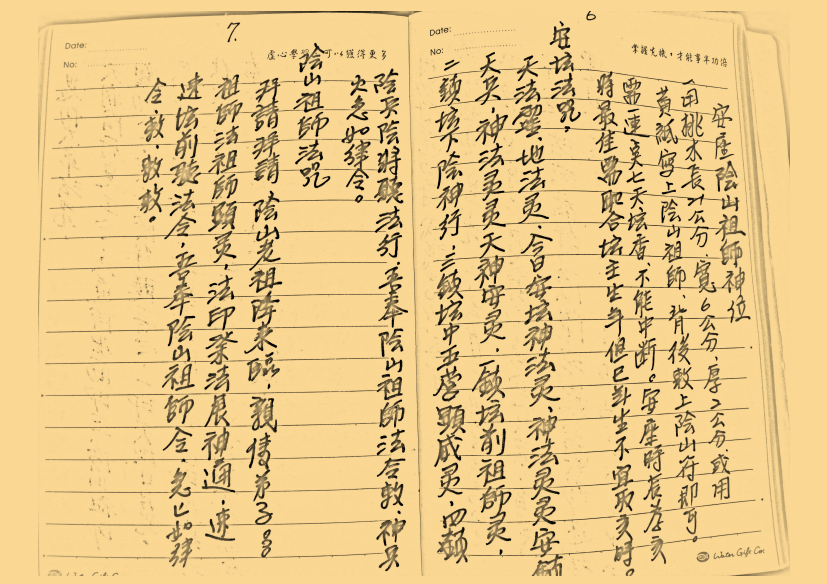 6
Date:
No:
掌握先機，才能事半功倍
安座陰山祖師神位
(用桃木長21公分.寬6公分.厚2公分或用
黃紙寫上陰山祖師.背後敕上陰山符即可。
需連奠七天坛香不能中断。安座時辰若亥
時最佳需配合坛主生年但巳卦生不宜取亥時。
安坛法咒，
天法靈.地法灵.今日安坛神法灵.神法灵灵安鎮
天英.神法灵灵天神安灵.一鎮坛前祖師灵，
二鎮坛下陰神行.三鎮坛中五營顕威灵.四鎮
Water Gift Co.
7.
Date:
No:
虛心學習 可以獲得更多
陰兵陰將聴法行.吾奉陰山祖師法令敕.神兵
火急如律令。
陰山祖師法咒
拜請拜請 陰山老祖降来臨.親傳弟子
祖師法祖師顕灵，法印發法展神通，速
速坛前聴法令.吾奉陰山祖師令.急急如律
令敕.敕敕。
Water Gift Co.